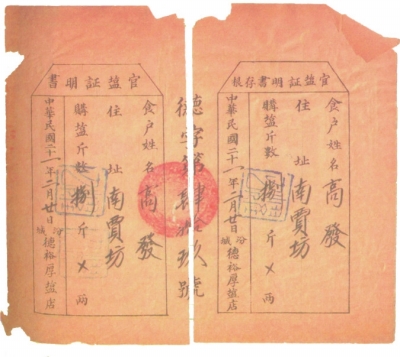 官盐証明書存根
食户姓名 高發
住址 南賈坊
購盐斤数 捌斤×两
中華民國二十一年二月廿日 汾城 德裕厚盐店
德字第肆拾玖號
官盐証明書
食户姓名 高發
住址 南賈坊
購盐斤数 捌斤×两
中華民國二十一年二月廿日 汾城 德裕厚盐店